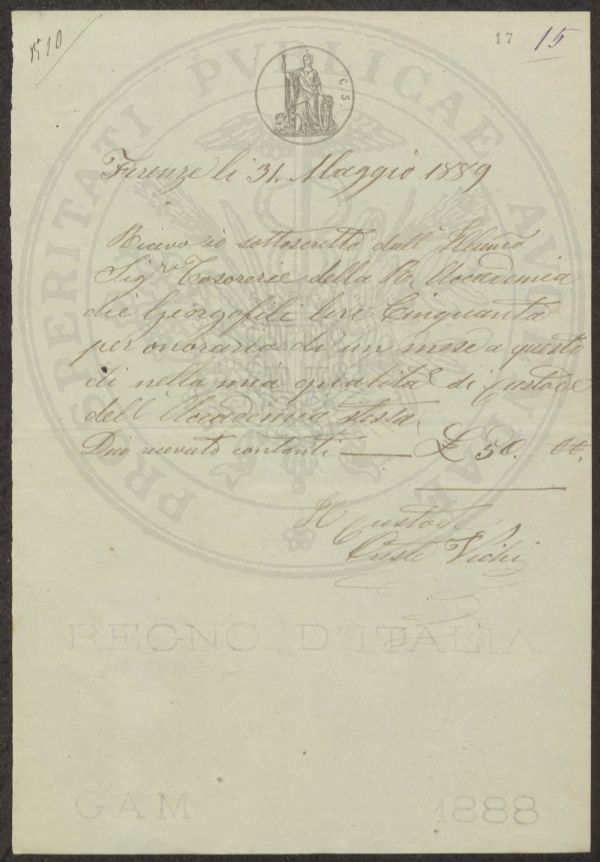 N 10
17 15
C. 5.
PROSPERITATI PVBLICAE AVGENDAE
Firenze li 31. Maggio 1889
Ricevo io sottoscritto dall' Illumo
Sigre Tesoriere della R. Accademia
die Georgofili lire Cinquanta
per onorario di un mese a questo
di nella mia qualità di Custode
dell' Accademia stessa.
Dico ricevuto contanti — £ 50. 00.
Il Custode
Vichi
REGNO D'ITALIA
GAM 1888